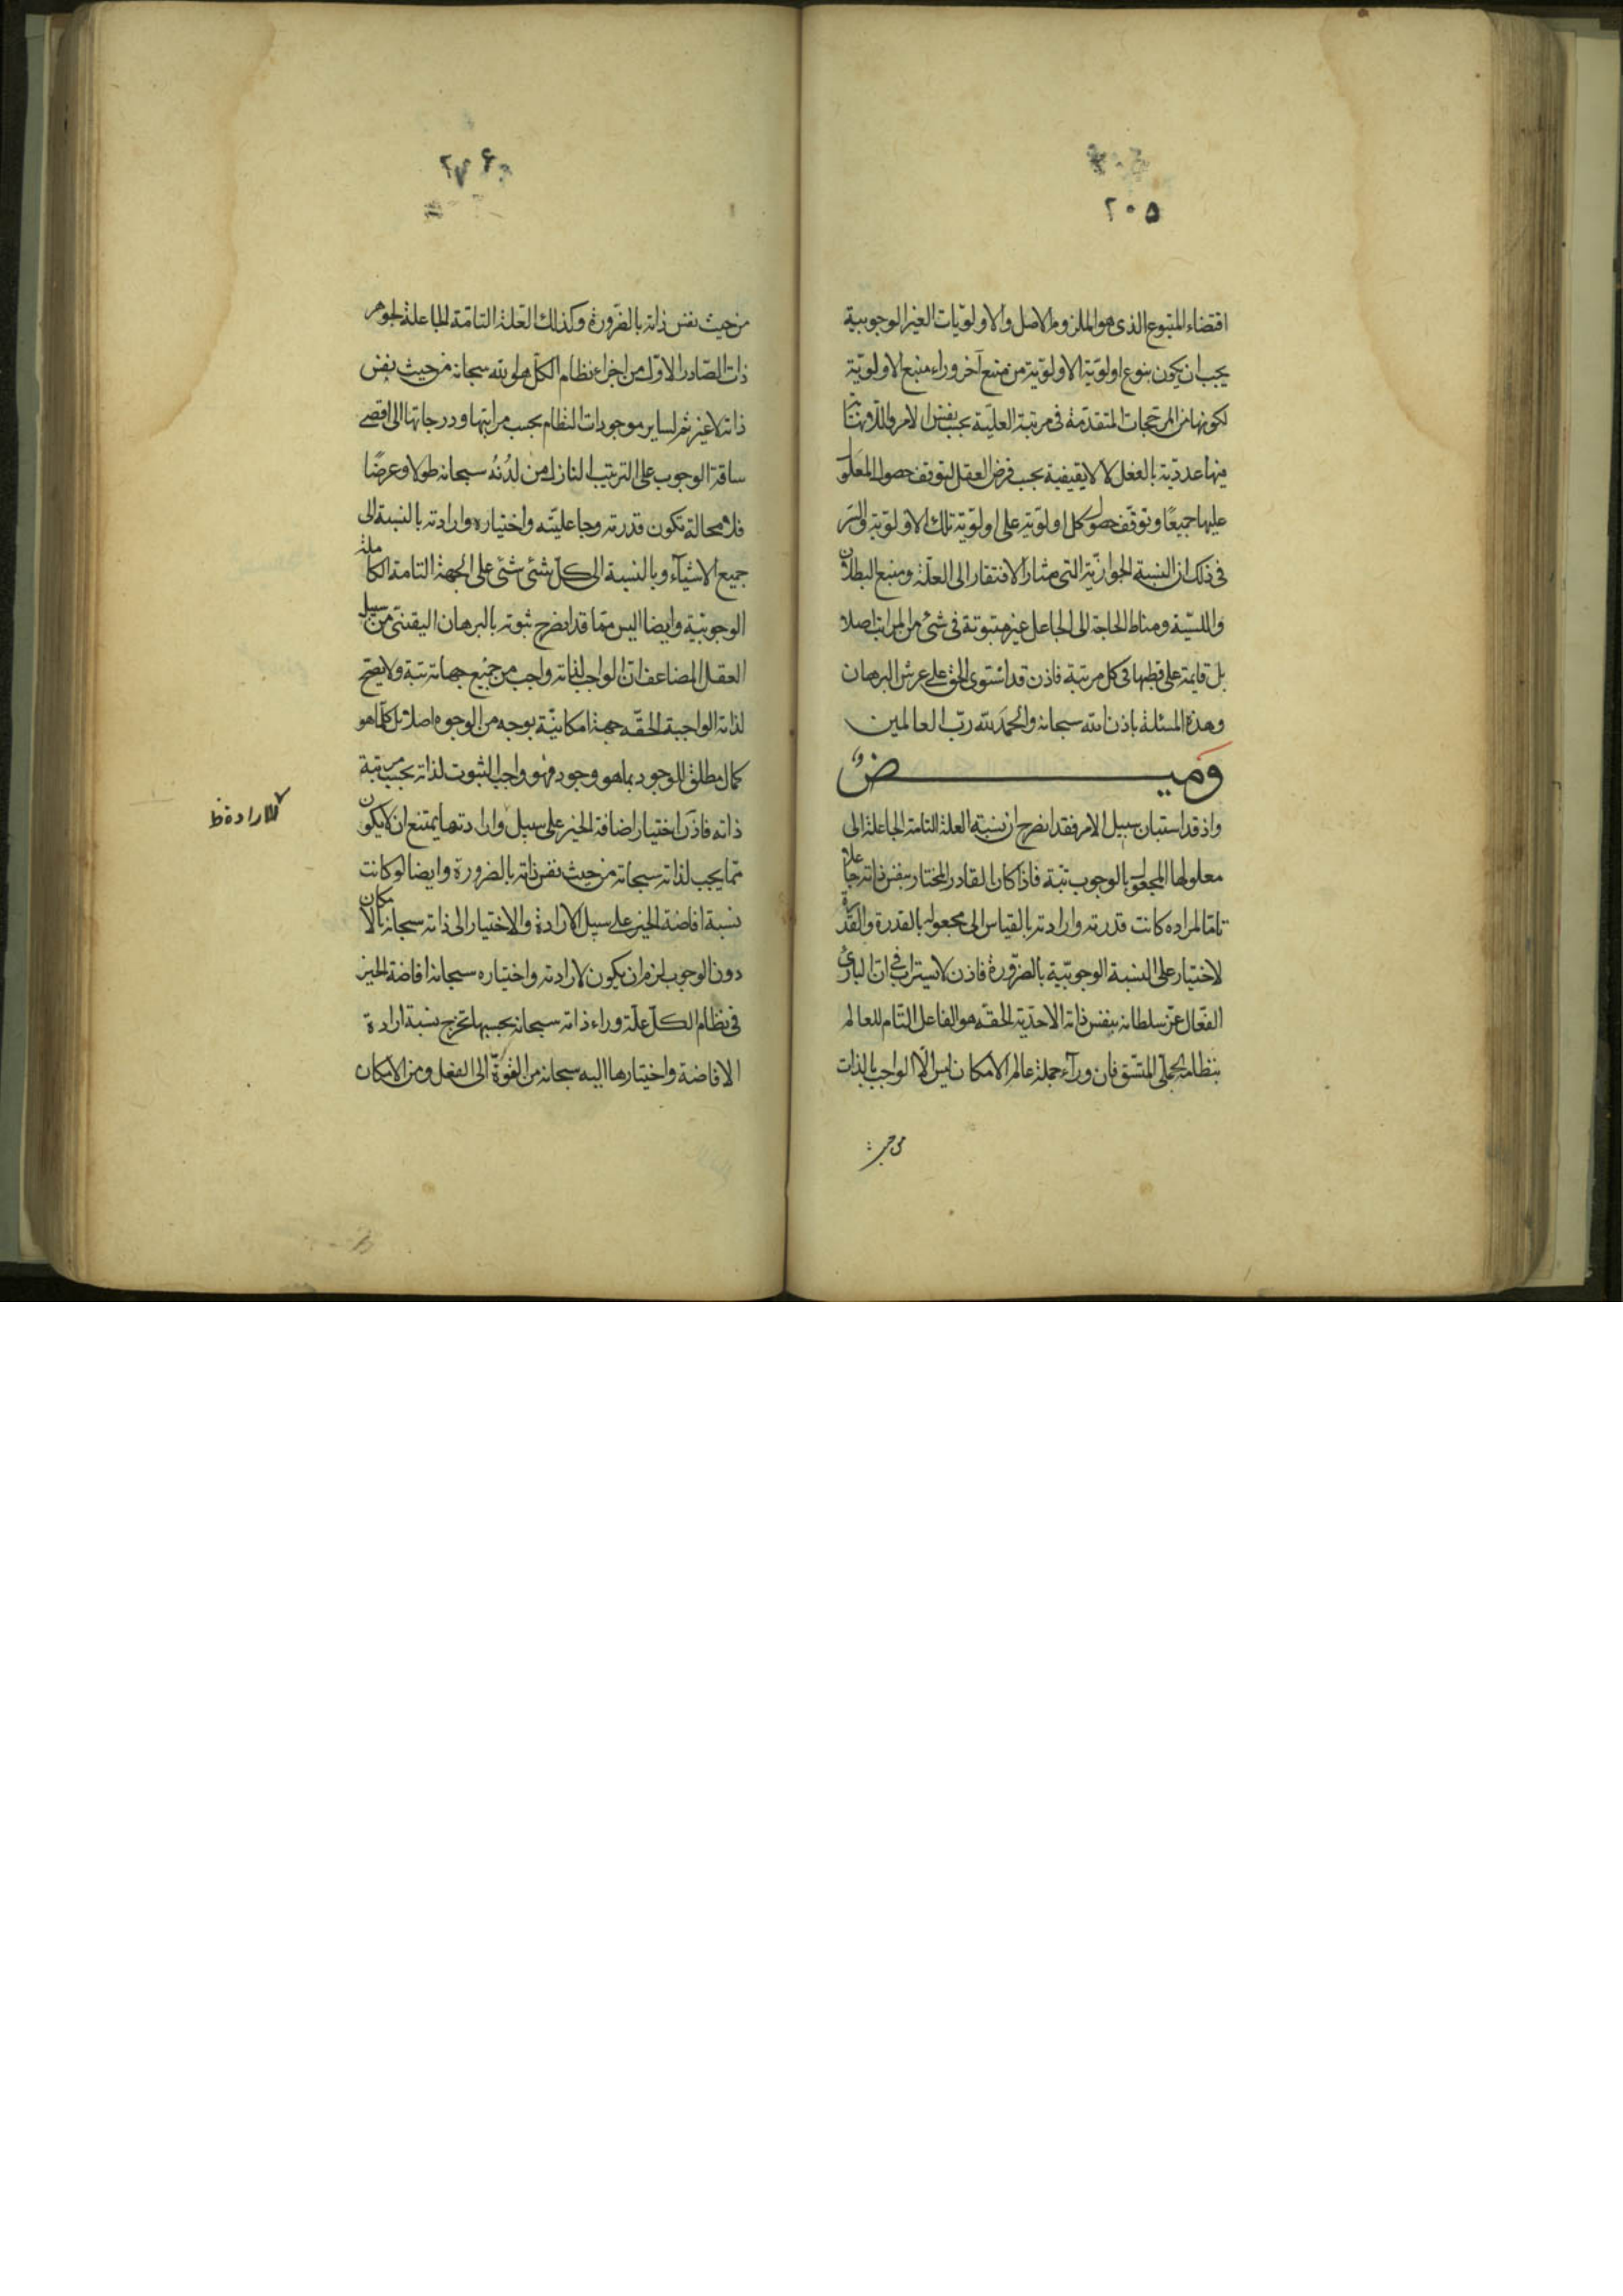 ٢٠٥
اقتضاء المتبوع الذى هو الملزوم الاصل والاولويات الغير الوجوبية
يجب ان يكون بنوع اولوية الاولوية من ممتنع آخر وراء منبع الاولوية
لكونها من المرجحات المتقدمة فى مرتبة العلية بحسب نفس الامر واللانهاية
منها عددية بالفعل لا لايقيفية بحسب فرض العقل لتوقف حصول المعلول
عليها جميعًا وتوقف حصول كل اولوية على اولوية تلك الاولوية والسر
فى ذلك ان النسبة الجوازية التى مثار الافتقار الى العلة ومنبع البطلان
والليسية ومناط الحاجة الى الجاعل غير مبتوتة فى شئ من المراتب اصلا
بل قايمة على قطبها فى كل مرتبة فاذن قد استوى الحق على عرش البرهان
وهذه المسئلة باذن الله سبحانه والحمد لله رب العالمين
وميض
واذ قد استبان سبيل الامر فقد انصرح ان نسبة العلة التامة الجاعلة الى
معلولها المجعول بالوجوب بتة فاذا كان القادر المختار بنفس ذاته جاعلا
تاما لمراده كانت قدرته وارادته بالقياس الى مجعوله بالقدرة والقدرة
لاختيار على النسبة الوجوبية بالضرورة فاذن لا يستراب فى ان البارئ
الفعال عز سلطانه بنفس ذاته الاحدية الحقه هو الفاعل التام للعالم
بنظامه الجملى المتسق فان ورآء جملة عالم الامكان ليس الا الواجب بالذات
من حيث
٢٧۶
من حيث نفس ذاته بالضرورة وكذلك العلة التامة الجاعلة لجوهر
ذات الصادر الاول من اجزاء نظام الكل هو الله سبحانه من حيث نفس
ذاته لا غير ثم لساير موجودات النظام بحسب مراتبها ودرجاتها الى اقصى
ساقة الوجوب على الترتيب النازل من لدنه سبحانه طولا وعرضًا
فلا محالة تكون قدرته وجاعليته واختياره وارادته بالنسبة الى
جميع الاشيآء وبالنسبة الى كل شئى شئى على الجهة التامة الكاملة
الوجوبية وايضا اليس مما قد انصرح ثبوته بالبرهان اليقينى من سبيل
العقل المضاعف ان الواجب لذاته واجب من جميع جهاته بتة ولا يصح
لذاته الواجبة الحقه جهة امكانية بوجه من الوجوه اصلا بل كلما هو
كمال مطلق للوجود بما هو وجود فهو واجب الثبوت لذاته بحسب مرتبة
ذاته فاذن اختيار اضافة الخير على سبيل وارادتها يمتنع ان لا يكون
مما يجب لذاته سبحانه من حيث نفس ذاته بالضرورة وايضا لو كانت
نسبة افاضة الخير على سبيل الارادة والاختيار الى ذاته سبحانه بالامكان
دون الوجوب لزم ان يكون لارادته واختياره سبحانه افاضة الخير
فى نظام الكل علة وراء ذاته سبحانه بحسبها تخرج نسبة ارادة
الافاضة واختيارها اليه سبحانه من القوة الى الفعل ومن الامكان
الارادة ظ